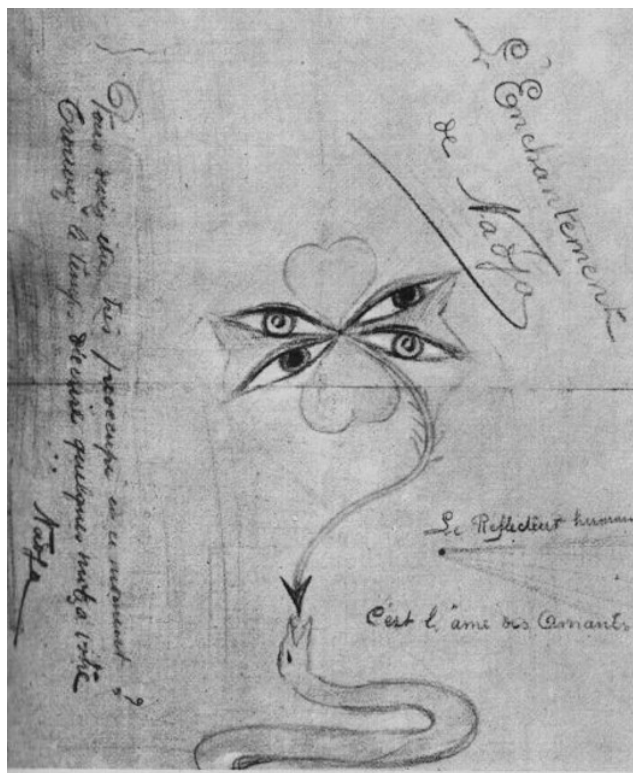 L'Enchantement
de Nadja
Vous devez être très préoccupé en ce moment ?
Trouvez le temps d'écrire quelques mots à votre
Nadja
Le Réflecteur humain
C'est l'âme des Amants